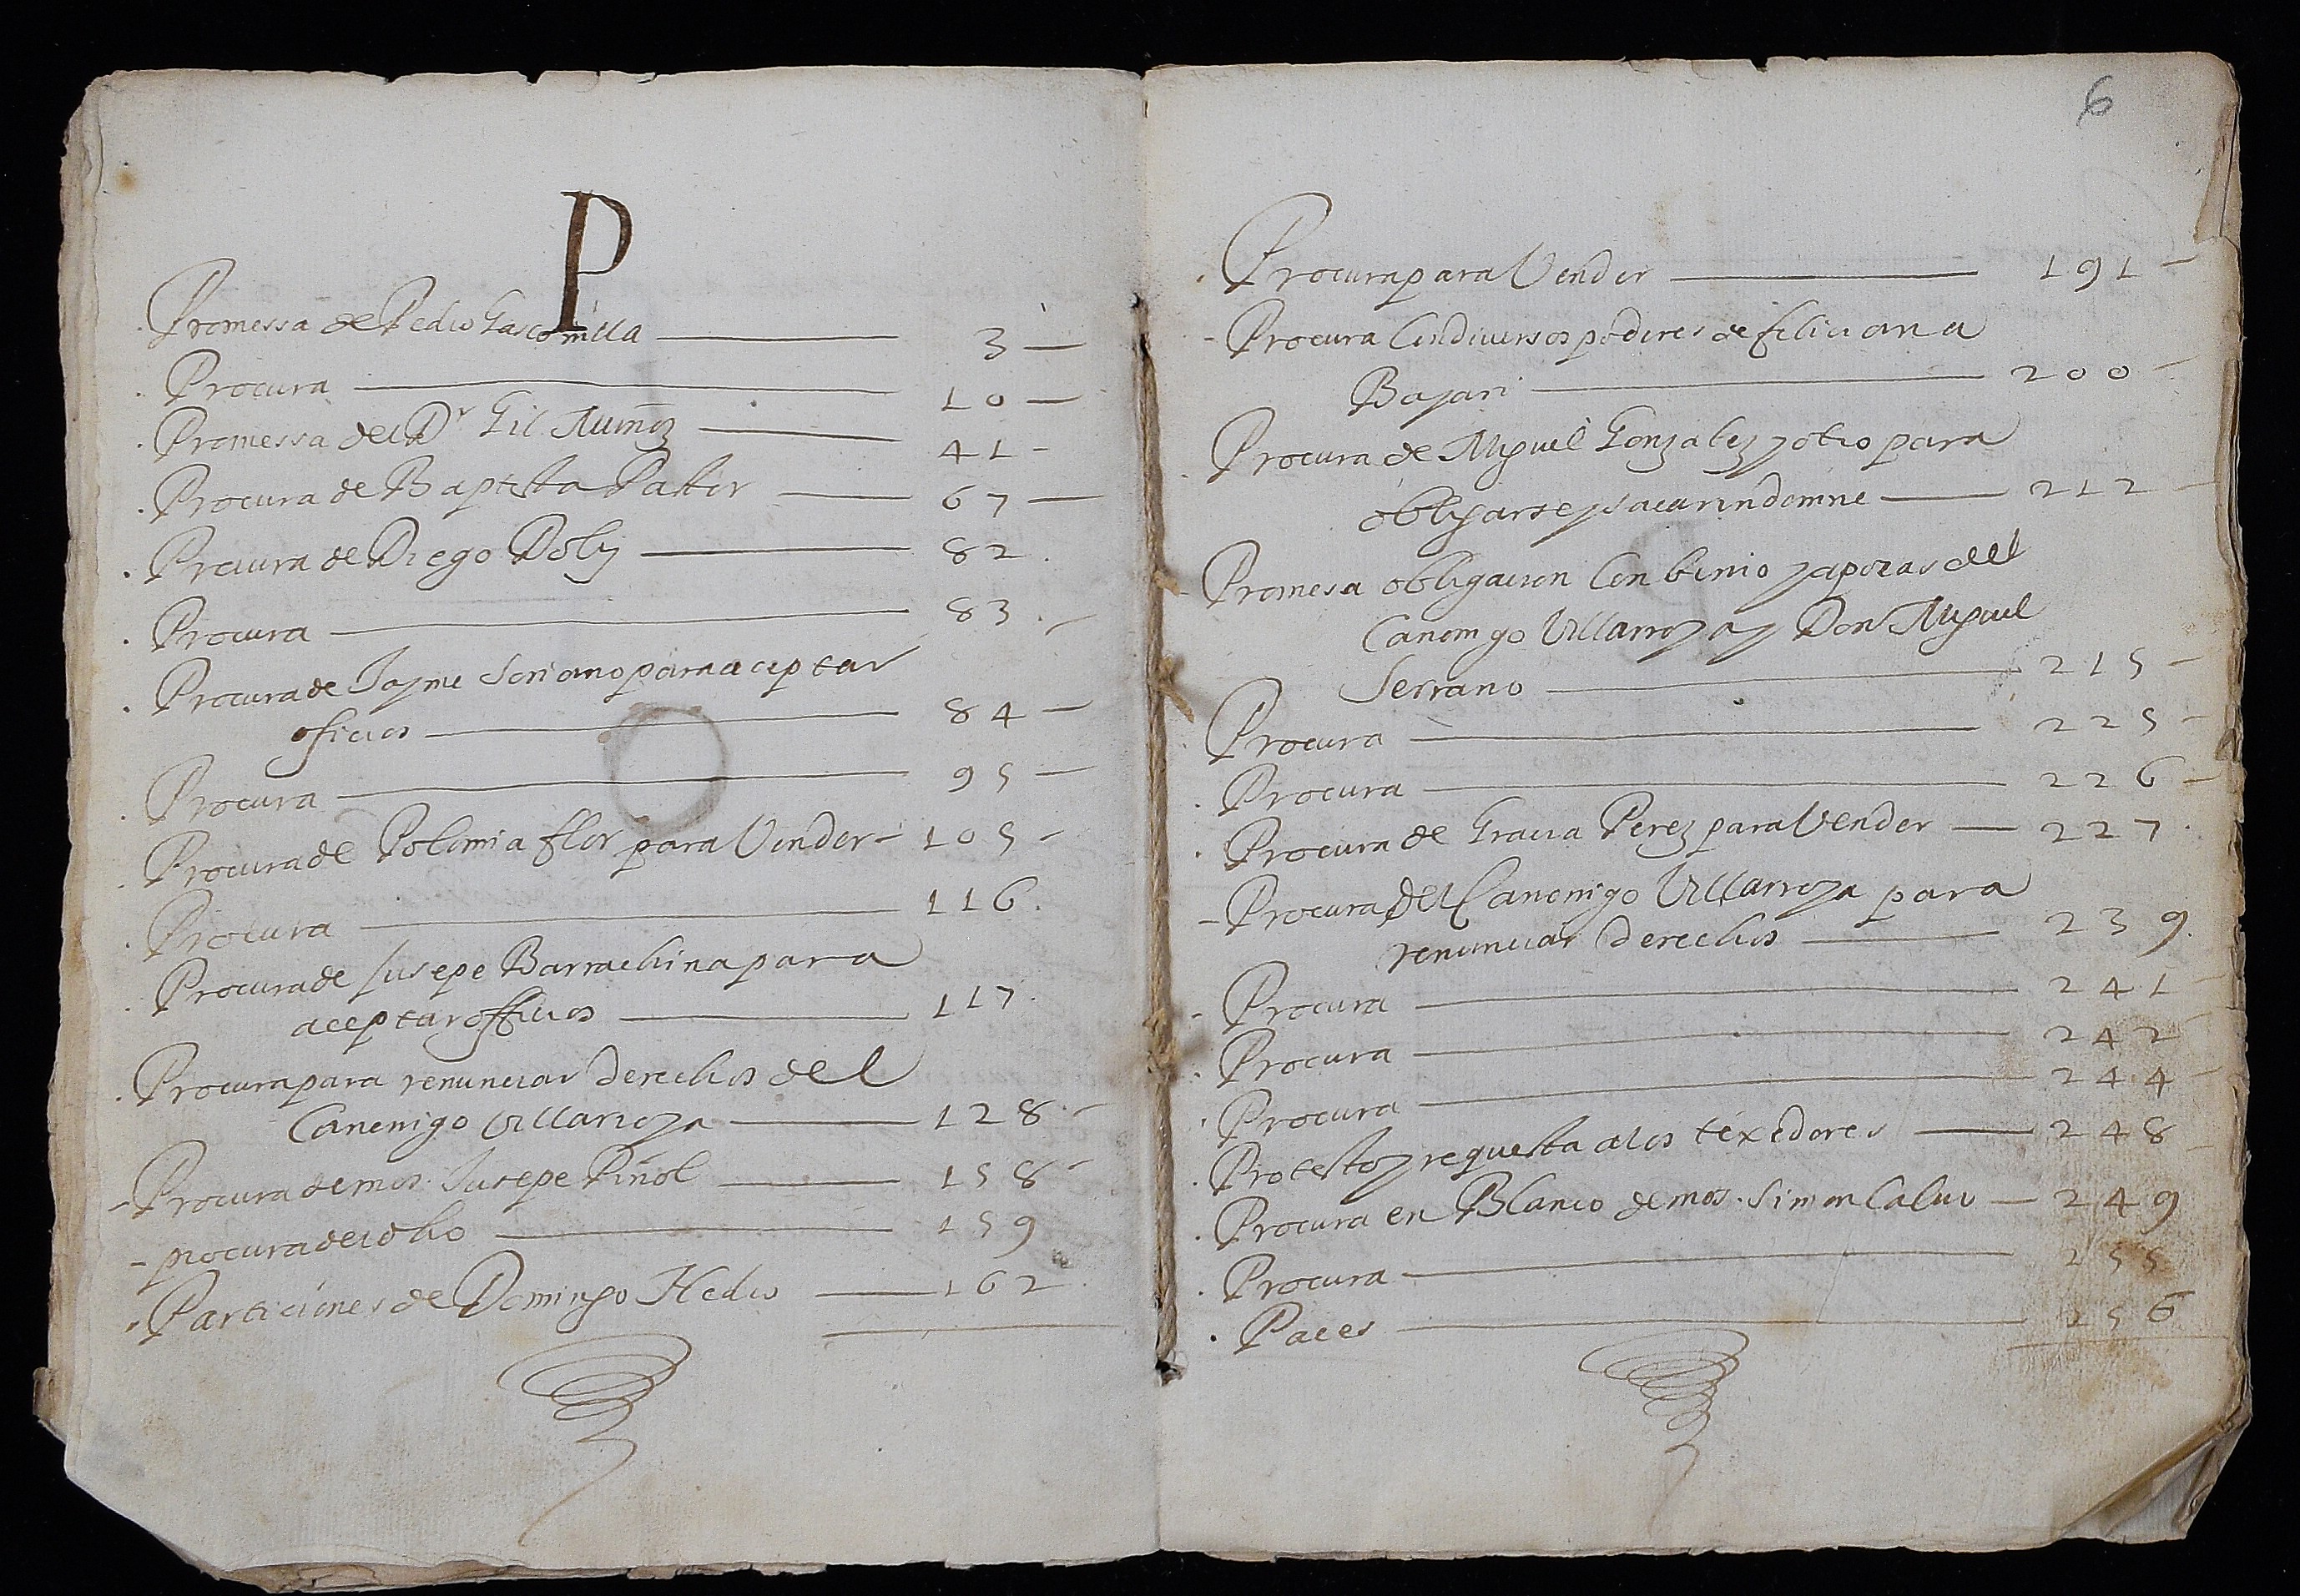 P
Promessa de Pedro Gasconilla 3
Procura 10
Promessa del Dr Gil Muñoz 41
Procura de Baptista Pastor 67
Procura de Diego Dolz 82
Procura 83
Procura de Jayme Soriano para aceptar
oficios 84
Procura 95
Procura de Polonia flor para Vender 105
Procura 116
Procura de Jusepe Barrachina para
aceptar officios 117
Procura para renunciar derechos del
Canonigo Villarroya 128
Procura de mos. Jusepe Piñol 158
procura del dho 159
Particiones de Domingo Hedo 162
6
Procura para Vender 191
Procura Con diversos poderes de feliciana
Bayarri 200
Procura de Miguel Gonzalez y otro para
obligarse y sacar indemne 212
Promesa obligacion Con binio y apocas del
Canonigo Villarroya y Don Miguel
Serrano 215
Procura 225
Procura 226
Procura de Gracia Perez para Vender 227
Procura del Canonigo Villarroya para
renunciar derechos 239
Procura 241
Procura 242
Procura 244
Protesto y requesta a los texedores 248
Procura en Blanco de mos. Simon Calvo 249
Procura 255
Paces 256